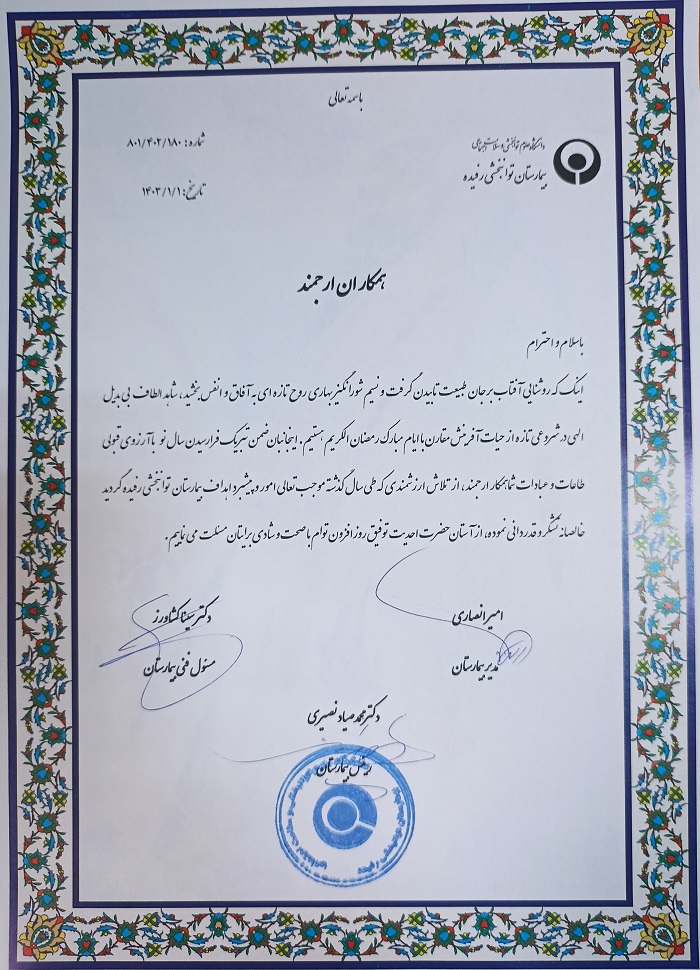 باسمه تعالی
دانشگاه علوم توانبخشی و سلامت اجتماعی
بیمارستان توانبخشی رفیده
شماره: ۸۰۱/۴۰۲/۱۸۰
تاریخ: ۱۴۰۳/۱/۱
همکاران ارجمند
باسلام و احترام
اینک که روشنایی آفتاب بر جان طبیعت تابیدن گرفت و نسیم شورانگیز بهاری روح تازه ای به آفاق و انفس بخشید، شاهد الطاف بی بدیل
الهی در شروعی تازه از حیات آفرینش مقارن با ایام مبارک رمضان الکریم هستیم. اینجانبان ضمن تبریک فرارسیدن سال نو با آرزوی قبولی
طاعات و عبادات شما همکار ارجمند، از تلاش ارزشمندی که طی سال گذشته موجب تعالی امور و پیشبرد اهداف بیمارستان توانبخشی رفیده گردید
خالصانه تشکر و قدردانی نموده، از آستان حضرت احدیت توفیق روز افزون توام با صحت و شادی برایتان مسئلت می نماییم.
امیر انصاری
مدیر بیمارستان
دکتر سینا کشاورز
مسئول فنی بیمارستان
دکتر محمد صیاد نصیری
رئیس بیمارستان